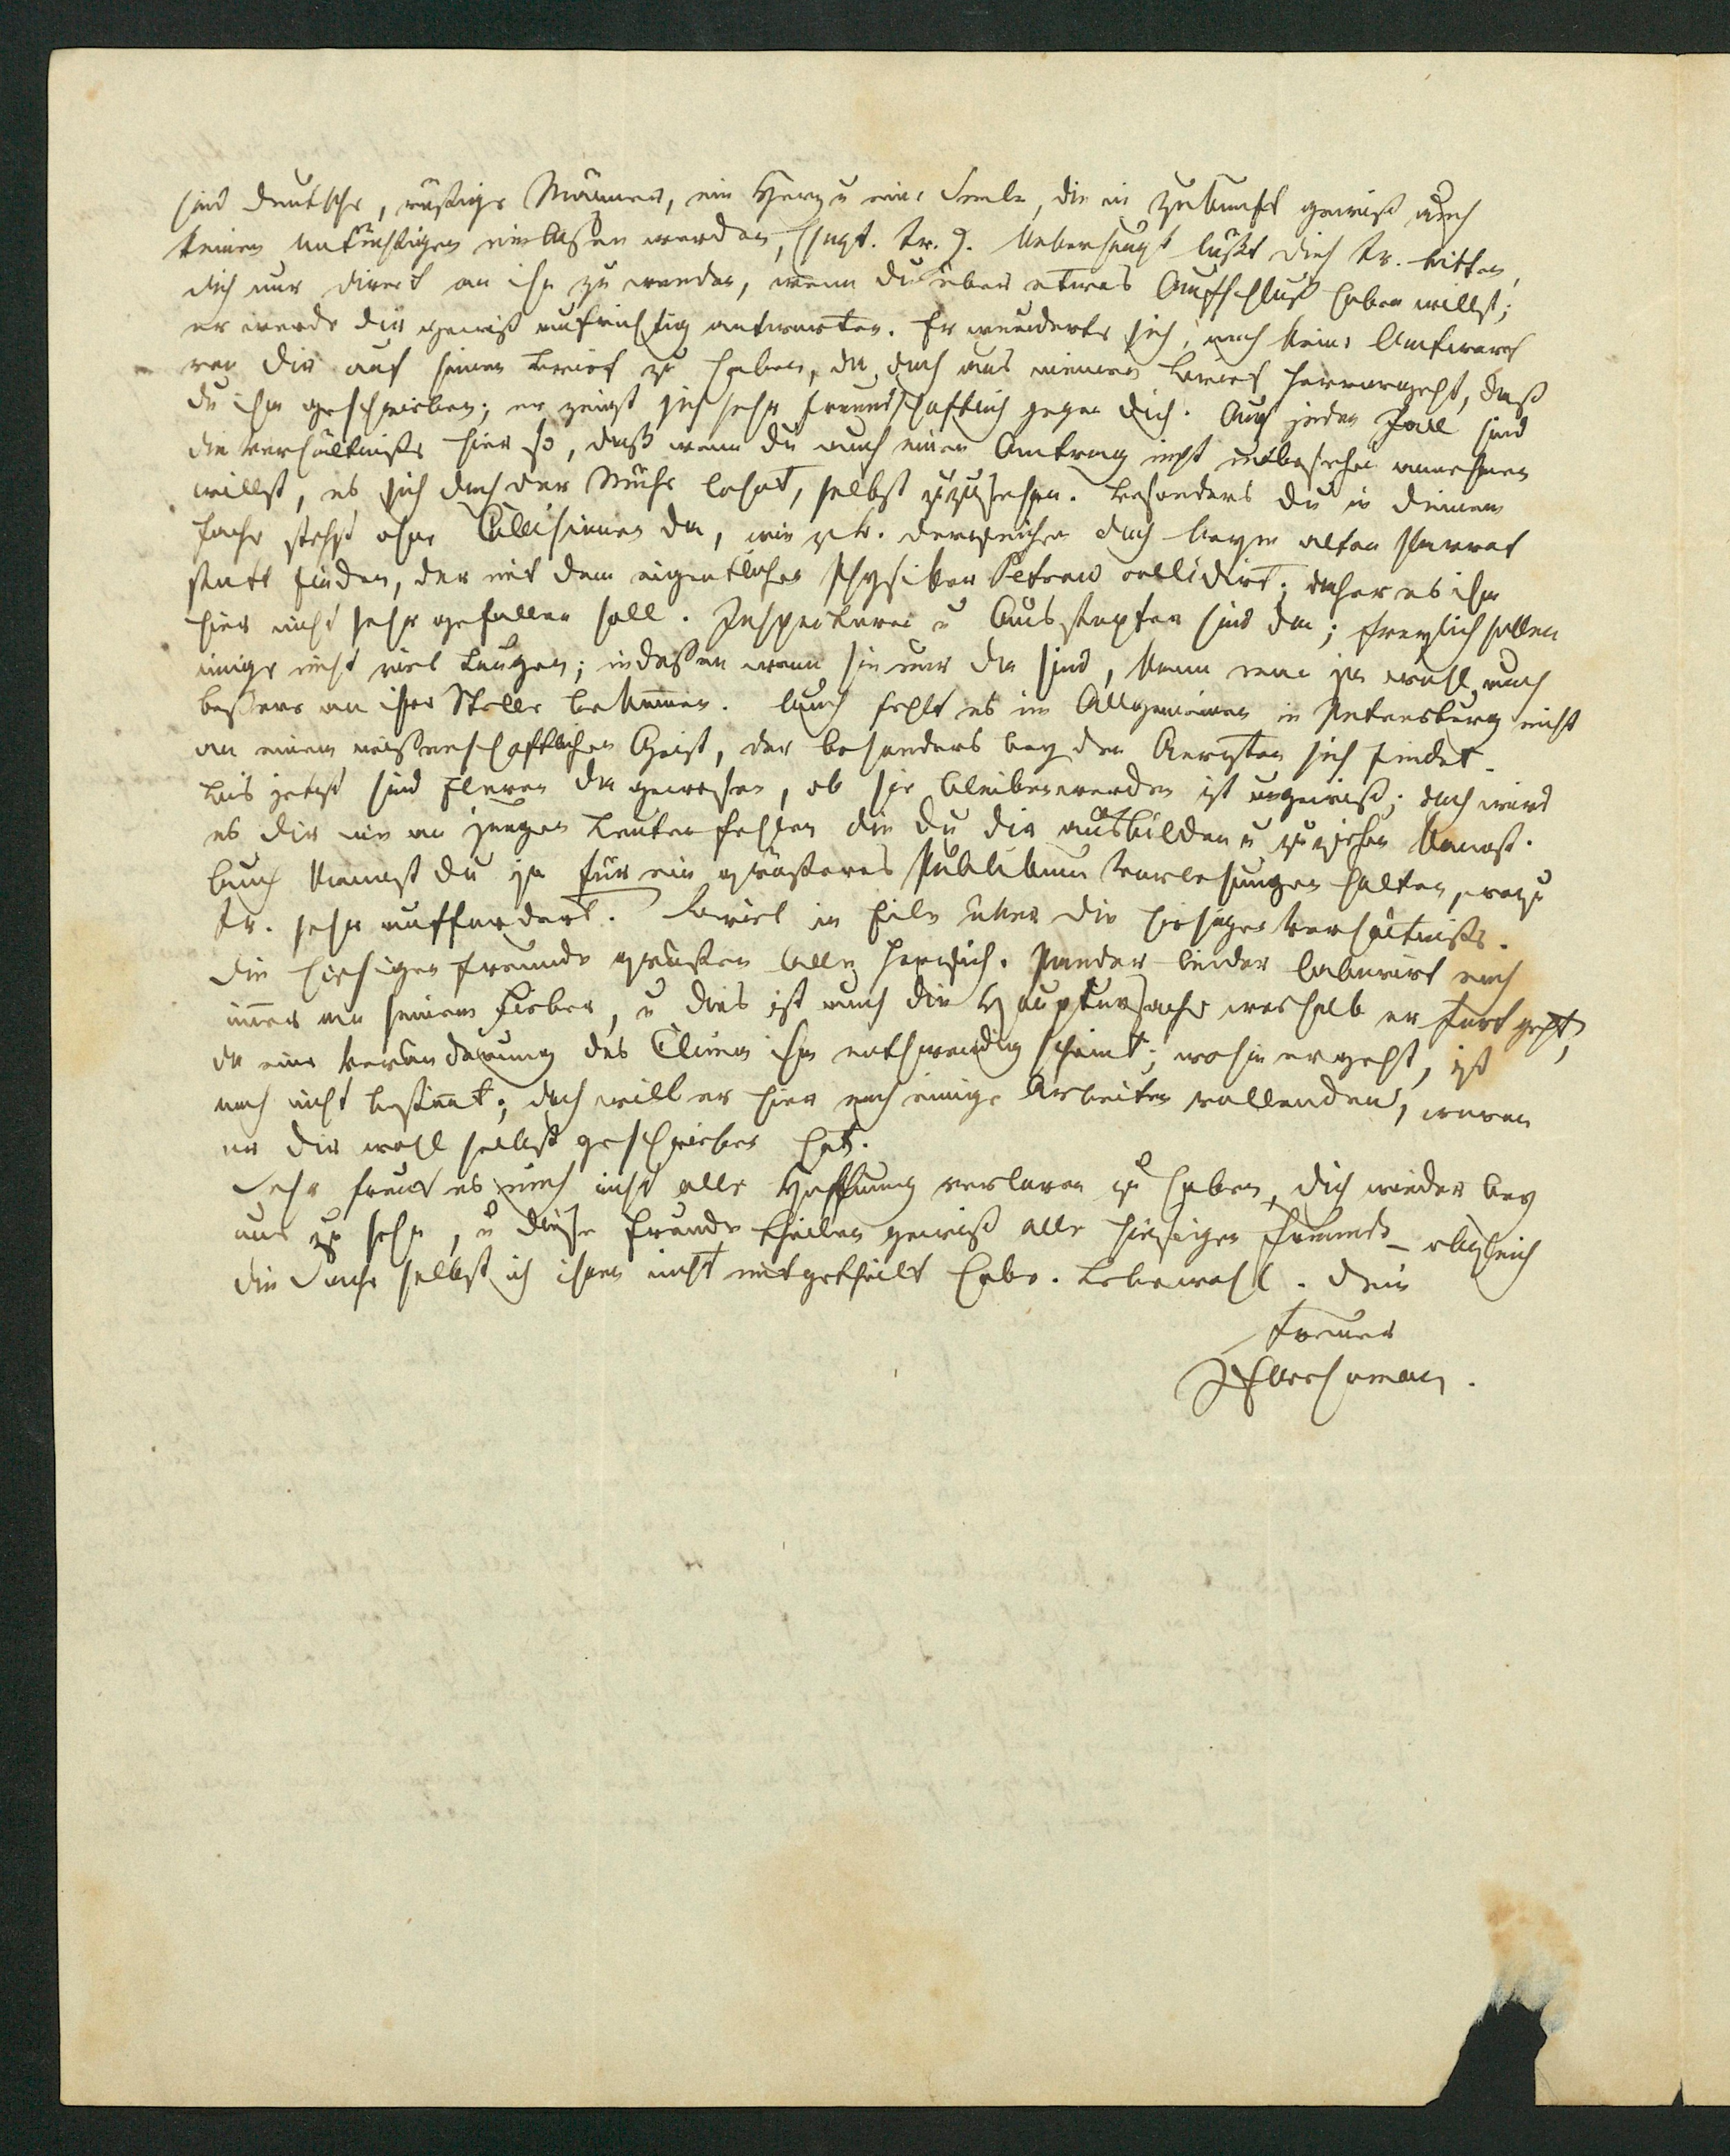 sind Deutsche, rüstige Männer, ein Herz u eine Seele, die in Zukunft gewiß auch
keinen untüchtigen einlassen werden, (sagt Tr.). Ueberhaupt läßt dich Tr. bitten,
dich nur direct an ihn zu wenden, wenn du über etwas Aufschluß haben willst;
er werde dir gewiß aufrichtig antworten. Er wunderte sich, noch keine Antwort
von dir auf seinen Brief zu haben, da doch aus meinem Brief hervorgeht, daß
du ihm geschrieben; er zeigt sich sehr freundschaftlich gegen dich. Auf jeden Fall sind
die Verhältniße hier so, daß wenn du auch einen Antrag nicht unbesehen annehmen
willst, es sich doch der Mühe lohnt, selbst zuzusehen. Besonders du in deinem
Fache stehst ohne Collisionen da, wie z. B. dergleichen doch beym alten Parrot
statt finden, der mit dem eigentlichen Physiker Petrow collidirt; daher es ihm
hier nicht sehr gefallen soll. Inspectoren u Ausstopfer sind da; freylich sollen
einige nicht viel taugen; indessen wenn sie nur da sind, kann man ja wohl auch
beßere an ihre Stelle bekommen. Auch fehlt es im Allgemeinen in Petersburg nicht
an einem wissenschaftlichen Geist, der besonders bey den Aerzten sich findet.
Bis jetzt sind Eleven da gewesen, ob sie bleiben werden ist ungewiß; doch wird
es dir nie an jungen Leuten fehlen die du dir ausbilden u zuziehen kannst.
Auch kannst du ja für ein größeres Publikum Vorlesungen halten, wozu
Tr. sehr auffordert. Soviel in Eile über die hiesigen Verhältniße.
Die hiesigen Freunde grüßen Alle herzlich. Pander leider laborirt noch
immer an seinem Fieber, u dies ist auch die Hauptursache weshalb er fort geht,
da eine Veränderung des Clima ihm nothwendig scheint; wohin er geht, ist
noch nicht bestimmt; doch will er hier noch einige Arbeiten vollenden, wovon
er dir wohl selbst geschrieben hat.
Sehr freut es mich nicht alle Hoffnung verloren zu haben, dich wieder bey
uns zu sehn, u diese Freude theilen gewiß alle hiesigen Freunde – obgleich
die Sache selbst ich ihnen nicht mitgetheilt habe. Lebewohl. Dein
treuer